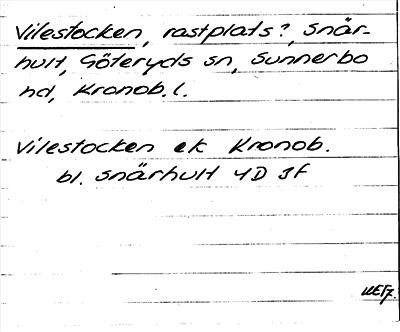 Vilestocken, rastplats?, Snär-
hult, Göteryds sn, Sunnerbo
hd, Kronob. l.
Vilestocken ek Kronob.
bl. Snärhult 4D 3f